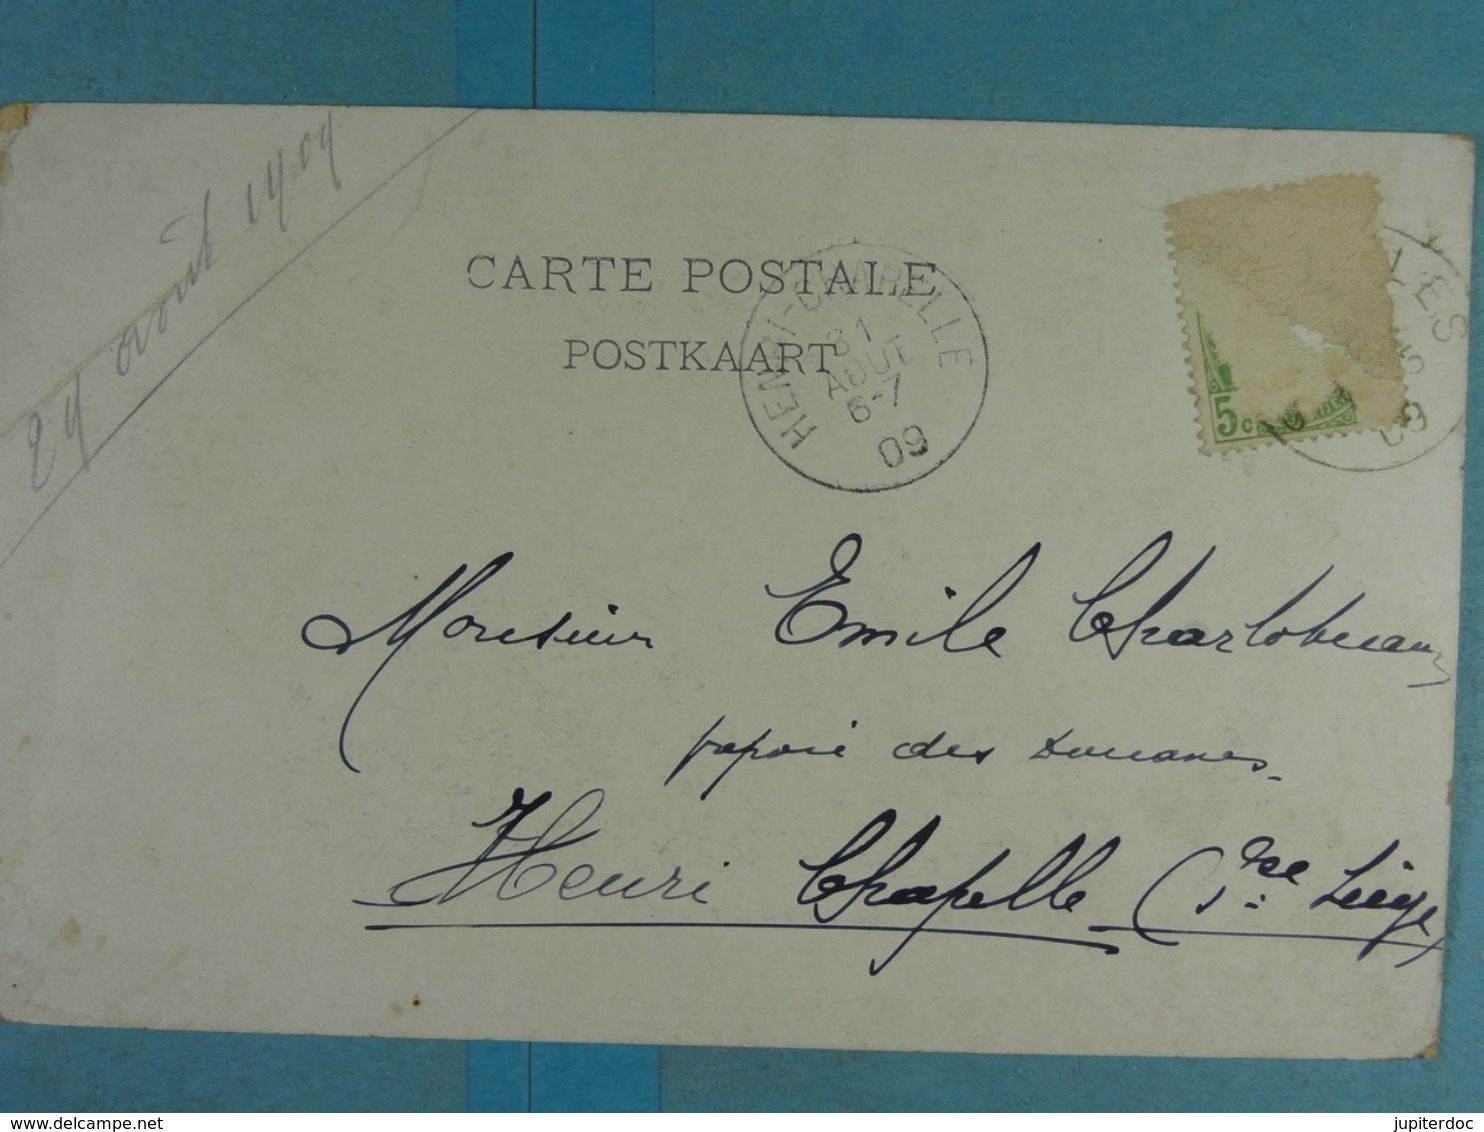 29 août 1909
CARTE POSTALE
POSTKAART
HENRI-CHAPELLE
31
AOUT
6-7
09
5 C
LES
09
Monsieur Emile Charlobeaux
préposé des Douanes
Henri Chapelle (Pce: Liège)
www.delcampe.net
jupiterdoc